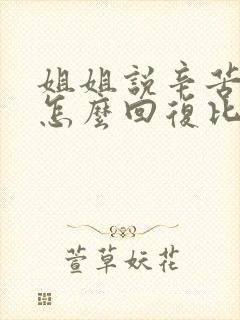 姐姐説辛苦
怎麽回復比
萱草妖花